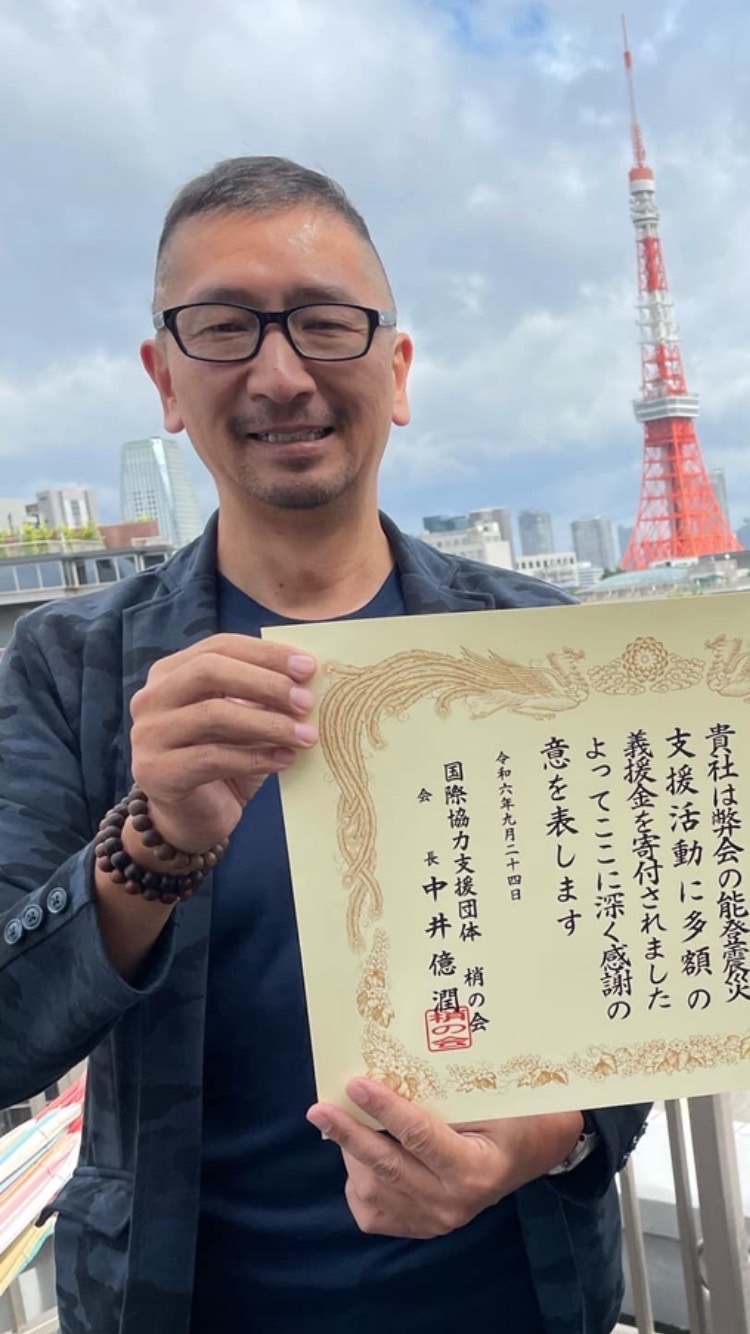 貴社は弊会の能登震災
支援活動に多額の
義援金を寄付されました
よってここに深く感謝の
意を表します
令和六年九月二十四日
国際協力支援団体 梢の会
会長 中井億潤
梢の会